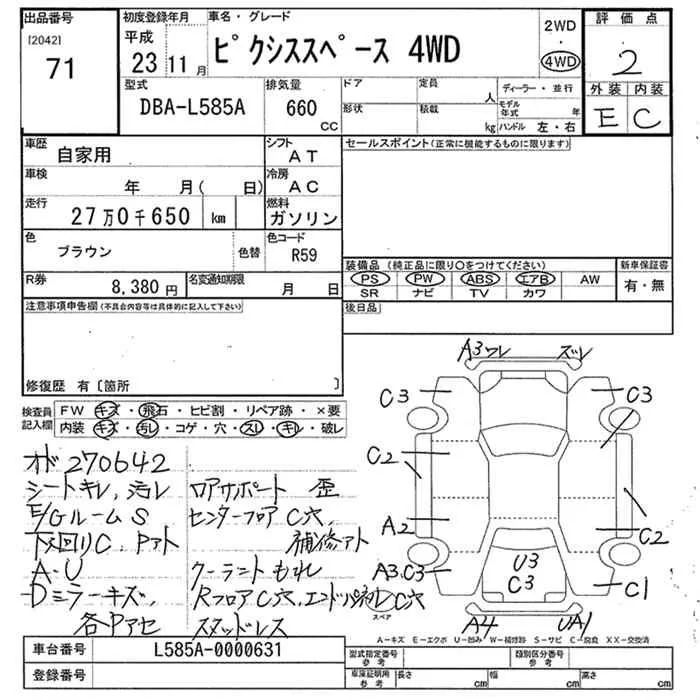 出品番号
[2042]
71
初度登録年月
平成
23 11 月
車名・グレード
ピクシススペース 4WD
2WD
・
4WD
評価点
2
外装 内装
E C
型式
DBA-L585A
排気量
660
CC
ドア
形状
定員
人
積載
kg
ディーラー・並行
モデル年式
年
ハンドル 左・右
車歴
自家用
シフト
AT
車検
年 月( 日)
冷房
AC
走行
27万0千650 km
燃料
ガソリン
色
ブラウン
色替
色コード
R59
R券
8,380 円
名変通知期限
月 日
セールスポイント(正常に機能するものに限ります)
装備品(純正品に限り○をつけてください)
PS PW ABS エアB AW
SR ナビ TV カワ
新車保証書
有・無
後日品
注意事項申告欄(不具合内容等は具体的に記入して下さい)
修復歴 有〔箇所 〕
検査員
記入欄
FW キズ・飛石・ヒビ割・リペア跡・×要
内装 キズ・汚レ・コゲ・穴・スレ・キレ・破レ
オド270642
シートキレ,汚レ
E/GルームS
下回りC.Pアト
A・U
Dミラーキズ,
各Pアセ
ロアサポート 歪
センターフロア C穴
補修アト
クーラントもれ
Rフロア C穴,エンドパネル C穴
スタッドレス
A3ワレ ズレ
C3 C3
C2
A2 C2
A3.C3 U3
C3
C1
スペア
A4 UA1
A−キズ E−エクボ U−凹み W−補修跡 S−サビ C−腐食 XX−交換済
車台番号
L585A-0000631
登録番号
型式指定番号
参考
類別区分番号
参考
車庫証明用
参考
長さ cm 幅 cm 高さ cm